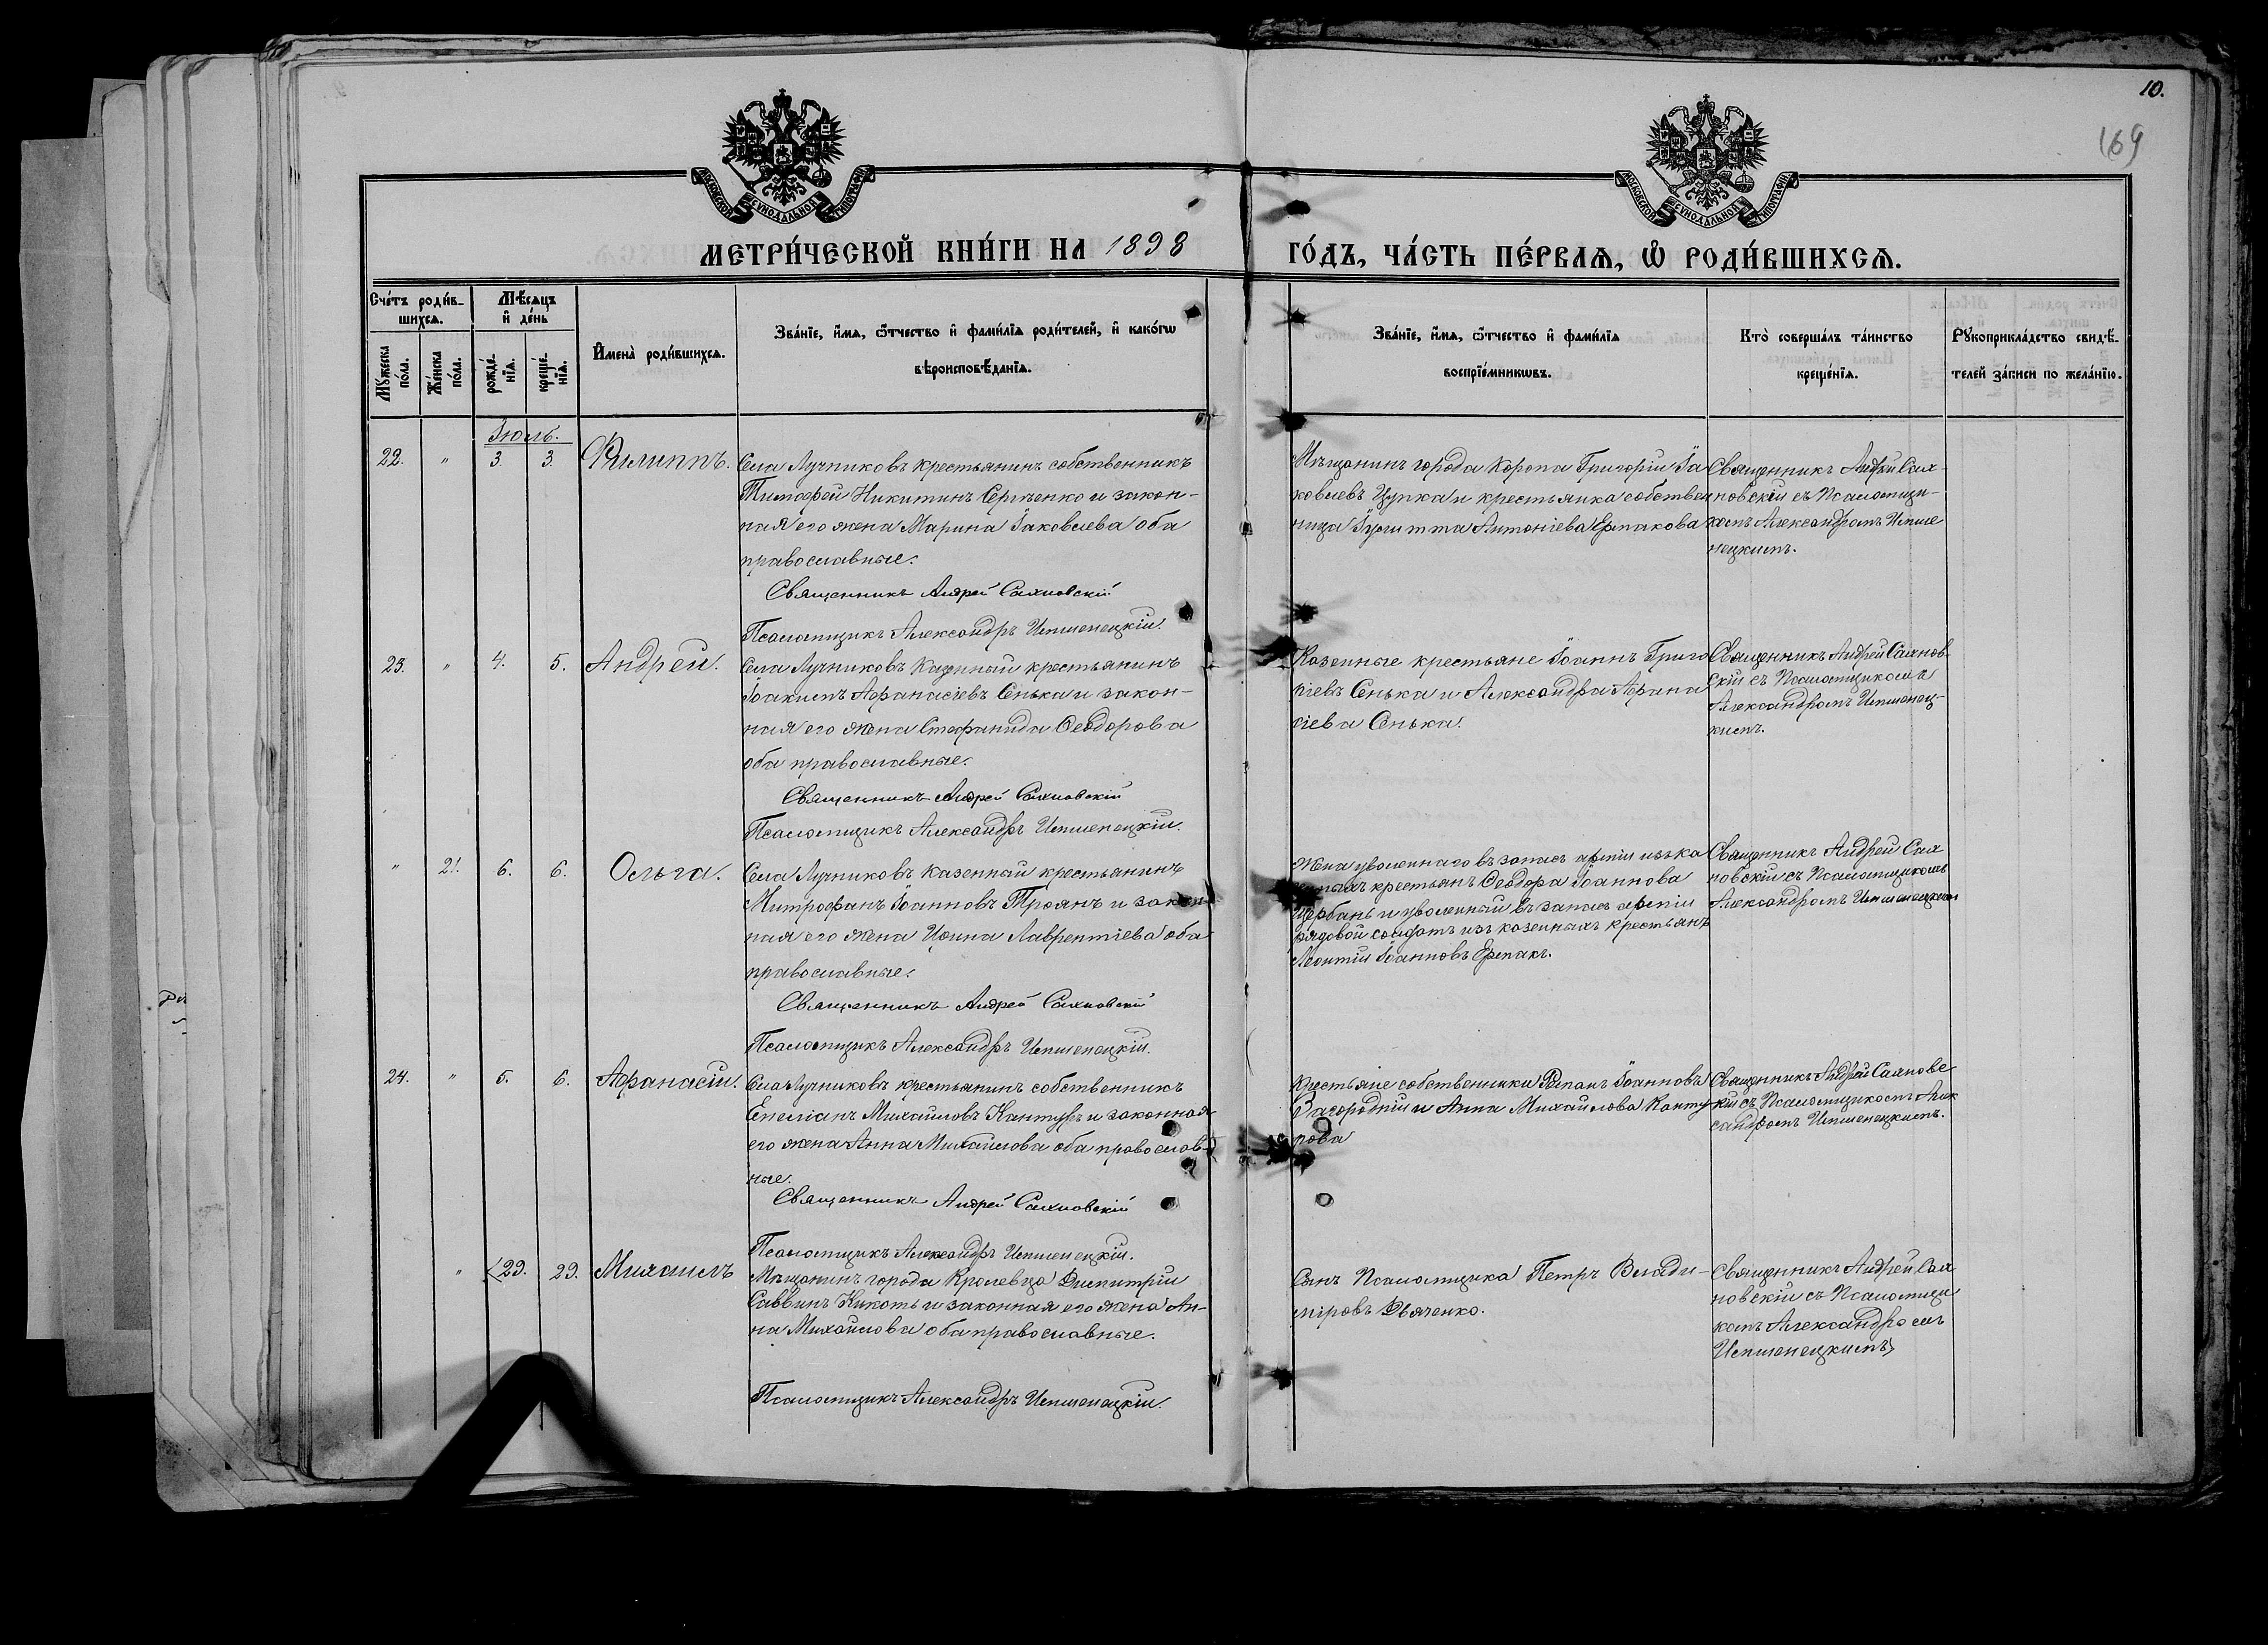 10.
169
МОСКОВСКОЙ СѴНОДАЛЬНОЙ ТИПОГРАФІИ
МОСКОВСКОЙ СѴНОДАЛЬНОЙ ТИПОГРАФІИ
МЕТРИ́ЧЕСКОЙ КНИ́ГИ НА 1898
ГО́ДЪ, ЧА́СТЬ ПЕ́РВАѦ, Ѽ РОДИ́ВШИХСѦ.
Сче́тъ роди́в-
шихсѧ.
Мѣ́сѧцъ
и҆ де́нь
Мꙋ́жеска по́ла.
Же́нска по́ла.
рожде́-нїѧ.
креще́-нїѧ.
И҆мена̀ роди́вшихсѧ.
Зва́нїе, и҆́мѧ, ѻ҆́тчество и҆ фами́лїѧ роди́телей, и҆ како́гѡ
вѣроисповѣ́данїѧ.
Зва́нїе, и҆́мѧ, ѻ҆́тчество и҆ фами́лїѧ
воспрїе́мникѡвъ.
Кто̀ соверша́лъ та́инство
креще́нїѧ.
Рꙋкоприкла́дство свидѣ́-
телей за́писи по жела́нїю.
Іюль.
22. " 3. 3. Филиппъ.
Села Лучниковъ крестьянинъ собственникъ
Тимофей Никитинъ Сергѣенко и закон-
ная его жена Марина Іаковлева оба
православные.
Священникъ Андрей Сахновскій
Псаломщикъ Александръ Имшенецкій.
Мѣщанинъ города Коропа Григорій Іа
ковлевъ Цупка и крестьянка собствен
ница Іулитта Антоніева Ермакова
Священникъ Андрей Сах-
новскій съ Псаломщи-
комъ Александромъ Имше
нецкимъ.
23. " 4. 5. Андрей.
Села Лучниковъ Казенный крестьянинъ
Іоакимъ Афанасіевъ Сенька и закон-
ная его жена Стефанида Феодорова
оба православные.
Священникъ Андрей Сахновскій
Псаломщикъ Александръ Имшенецкій.
Казенные крестьяне Іоаннъ Григо
ріевъ Сенька и Александра Афана
сіева Сенька.
Священникъ Андрей Сахнов-
скій съ Псаломщикомъ
Александромъ Имшенец-
кимъ.
" 21. 6. 6. Ольга.
Села Лучниковъ казенный крестьянинъ
Митрофанъ Іоанновъ Троянъ и закон-
ная его жена Ирина Лаврентіева оба
православные.
Священникъ Андрей Сахновскій
Псаломщикъ Александръ Имшенецкій.
Жена уволеннаго въ запасъ арміи изъ ка
зенныхъ крестьянъ Феодора Іоаннова
Щербань и уволенный въ запасъ арміи
рядовой солдатъ изъ казенныхъ крестьянъ
Леонтій Іоанновъ Ермакъ.
Священникъ Андрей Сах
новскій съ Псаломщикомъ
Александромъ Имшенецкимъ
24. " 5. 6. Афанасій.
Села Лучниковъ крестьянинъ собственникъ
Емеліанъ Михайловъ Кантуръ и законная
его жена Анна Михайлова оба православ-
ные.
Священникъ Андрей Сахновскій
Псаломщикъ Александръ Имшенецкій.
Крестьяне собственники Романъ Іоанновъ
Загородній и Анна МихайловаКанту
рова
Священникъ Андрей Сахновс
кій съ Псаломщикомъ Алек
сандромъ Имшенецкимъ.
" 29. 29. Михаилъ
Мѣщанинъ города Кролевца Димитрій
Саввинъ Кикоть и законная его жена Ан-
на Михайлова оба православные.
Псаломщикъ Александръ Имшенецкій.
Сынъ Псаломщика Петръ Влади-
міровъ Дяченко.
Священникъ Андрей Сах
новскій съ Псаломщи
комъ Александромъ
Имшенецкимъ